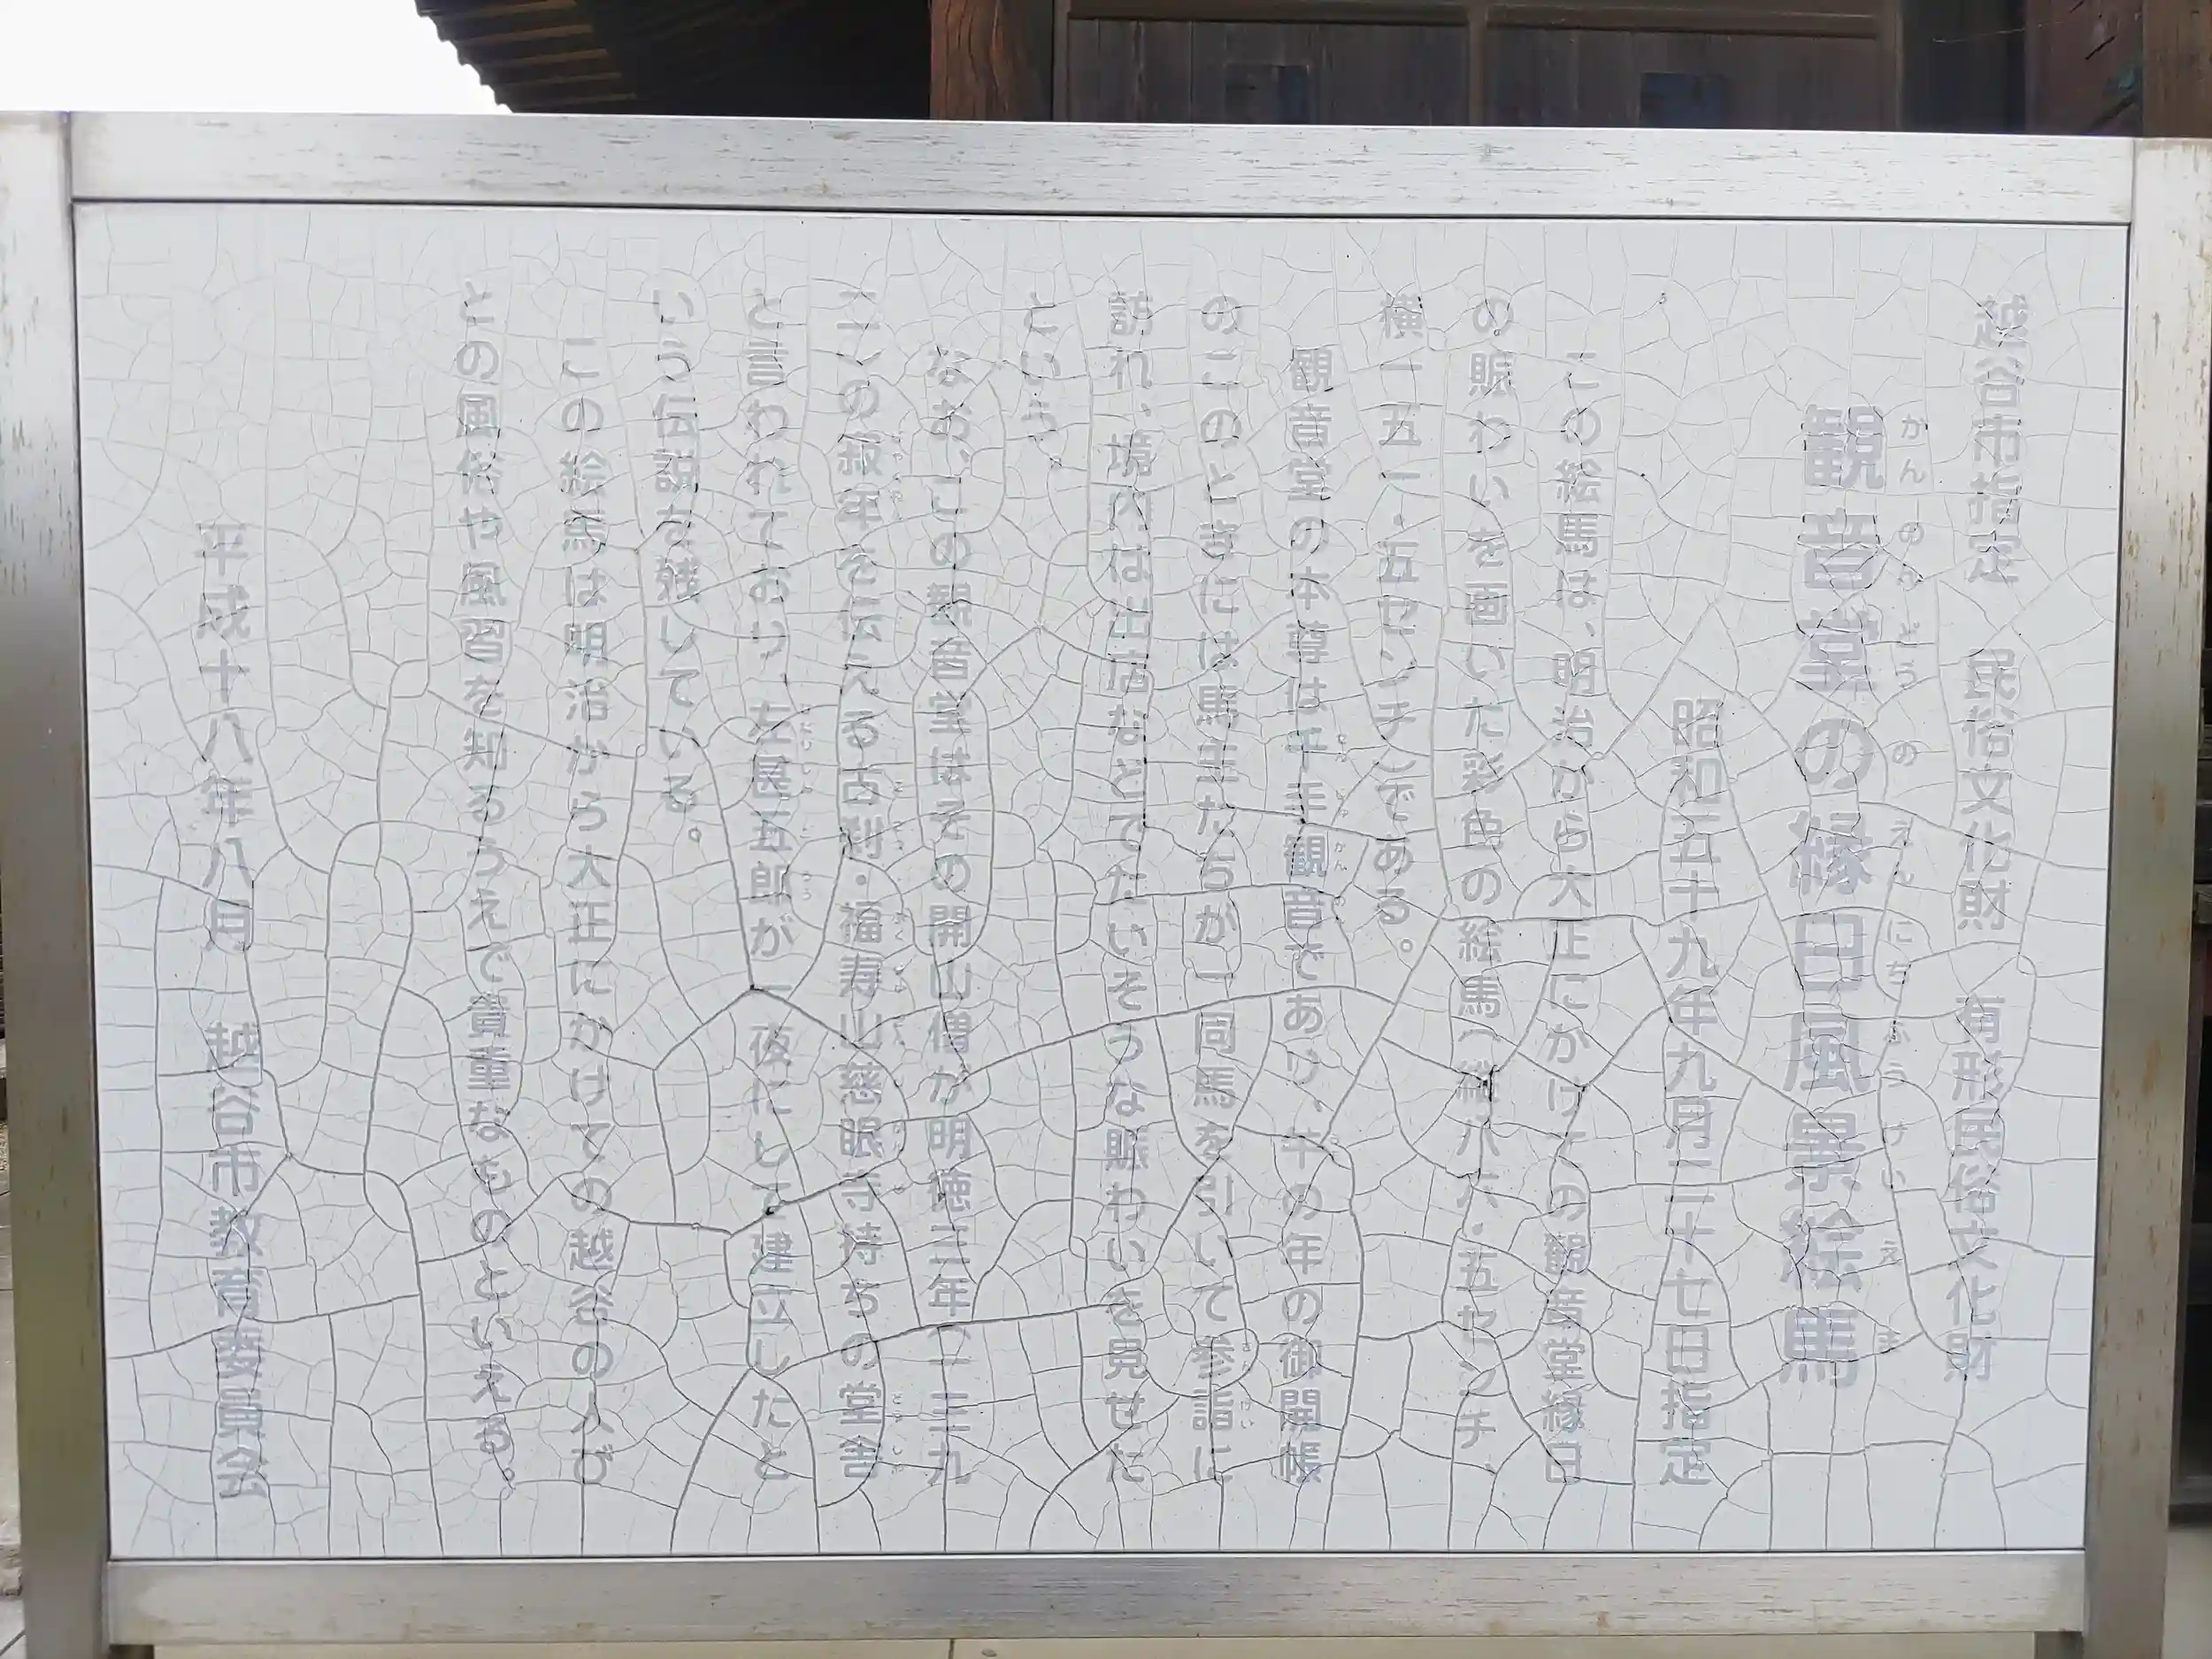 越谷市指定　民俗文化財　有形民俗文化財
観音堂の縁日風景絵馬
かんのんどうのえんにちふうけいえま
昭和五十九年九月二十七日指定
この絵馬は、明治から大正にかけての観音堂縁日
の賑わいを画いた彩色の絵馬（縦八六・五センチ、
横一五一・五センチ）である。
観音堂の本尊は千手観音であり、午の年の御開帳
のこのときには馬主たちが一同馬を引いて参詣に
訪れ、境内は出店などでたいそうな賑わいを見せた
という。
なお、この観音堂はその開山僧が明徳三年（一三九
二）の寂年を伝える古刹・福寿山慈眼寺持ちの堂舎
と言われており、左甚五郎が一夜にして建立したと
いう伝説を残している。
この絵馬は明治から大正にかけての越谷の人び
との風俗や風習を知るうえで貴重なものといえる。
平成十八年八月　越谷市教育委員会